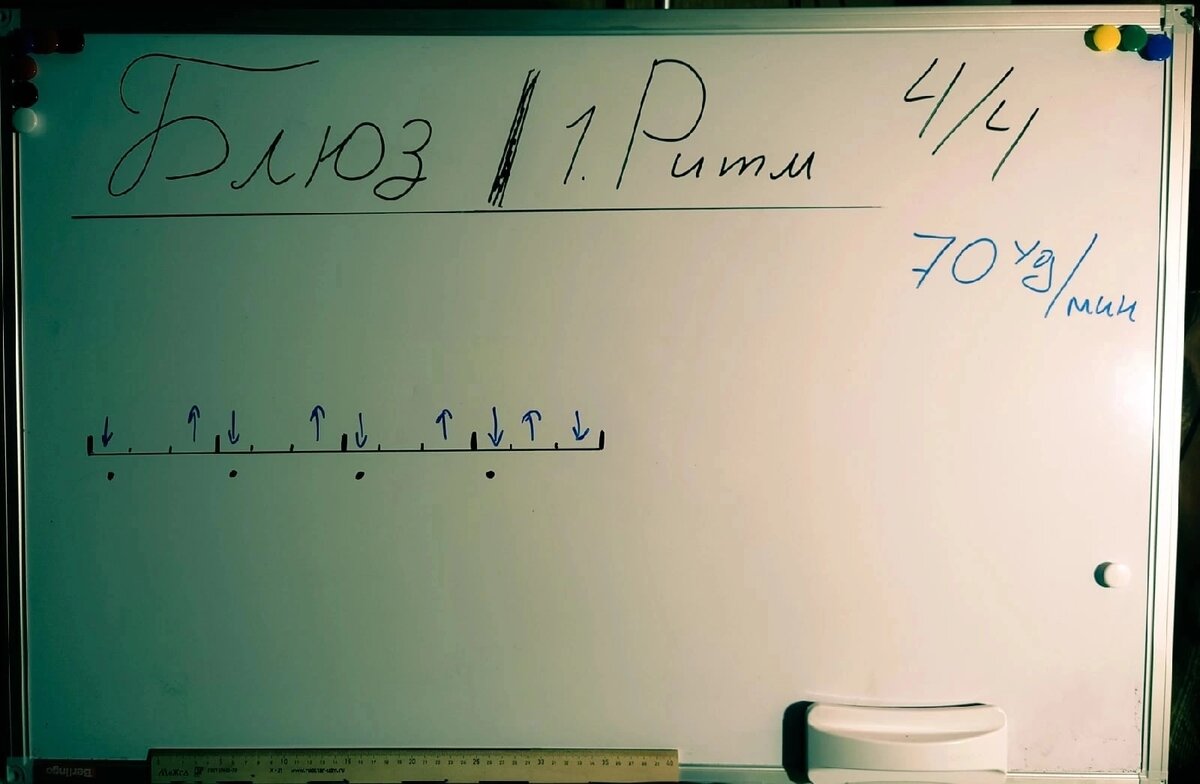 Блюз | 1. Ритм 4/4
70 уд/мин
↓ ↑ ↓ ↑ ↓ ↑ ↓ ↑ ↓
Berlingo